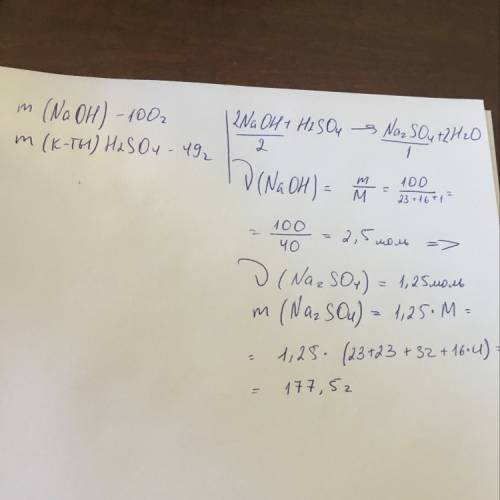 m (NaOH) - 100г
m (к-ты) H2SO4 - 49г
2NaOH + H2SO4 → Na2SO4 + 2H2O
2 1
ν (NaOH) = m/M = 100/23+16+1 =
= 100/40 = 2,5 моль =>
ν (Na2SO4) = 1,25 моль
m (Na2SO4) = 1,25 · M =
= 1,25 · (23+23+32+16·4) =
= 177,5г